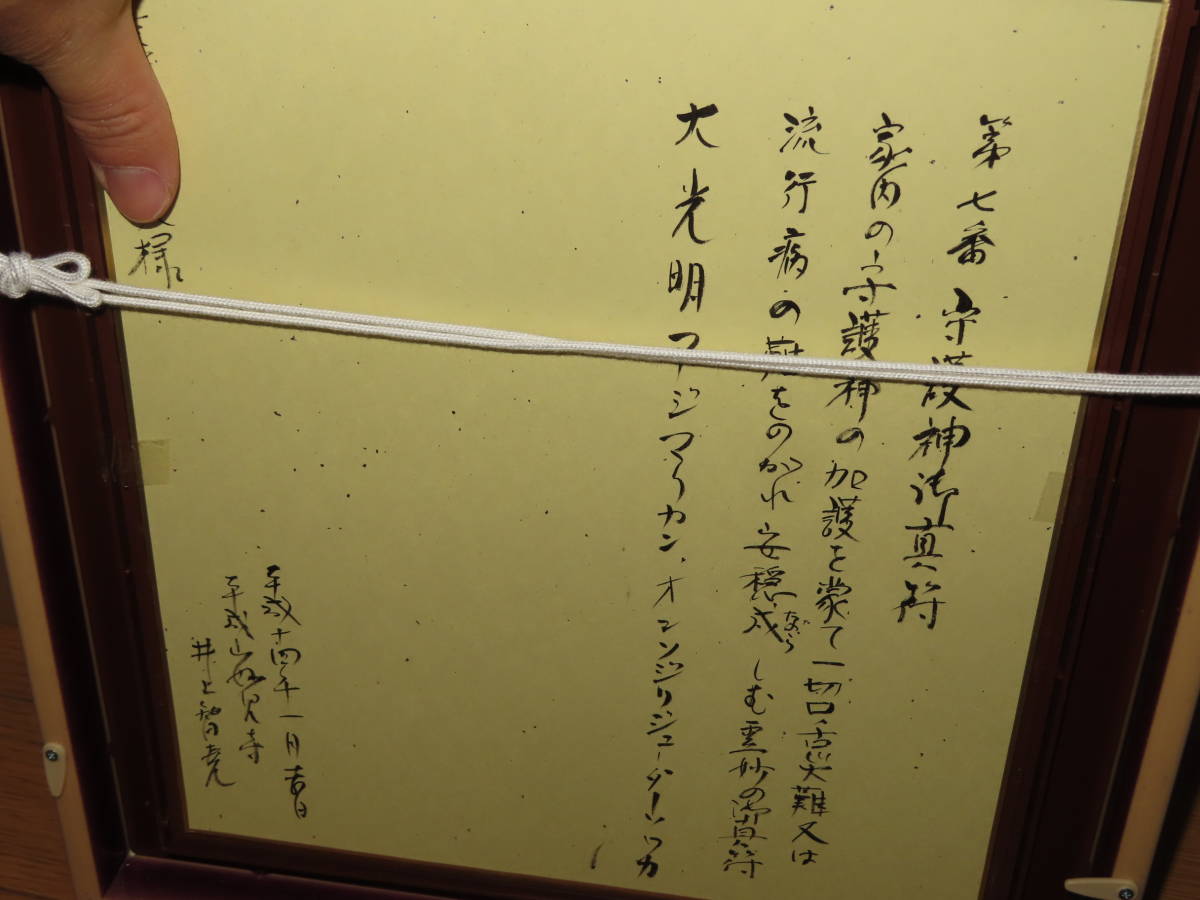 第七番 守護神御真符
家内の守護神の加護を蒙て一切口舌災難又は
流行病の難をのがれ安穏成ならしむ霊妙の御真符
大光明マジマラカン、オコンジリジューターソワカ
平成十四年一月吉日
平成山妙見寺
井上智亮
様